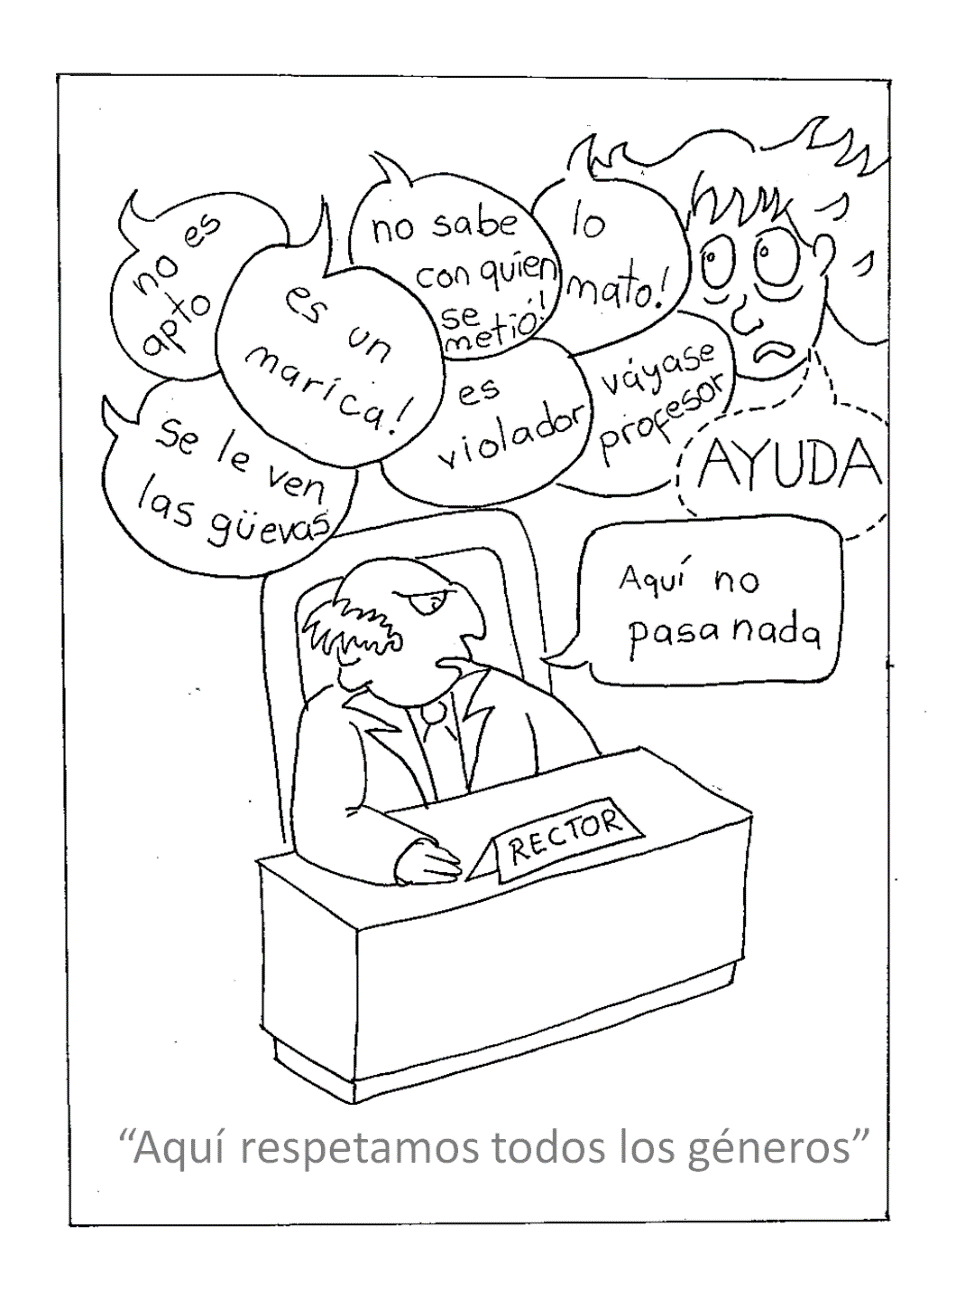 no es
apto
es un
marica!
no sabe
con quien
se
metió!
lo
mato!
se le ven
las güevas
es
violador
váyase
profesor
AYUDA
Aquí no
pasa nada
RECTOR
“Aquí respetamos todos los géneros”